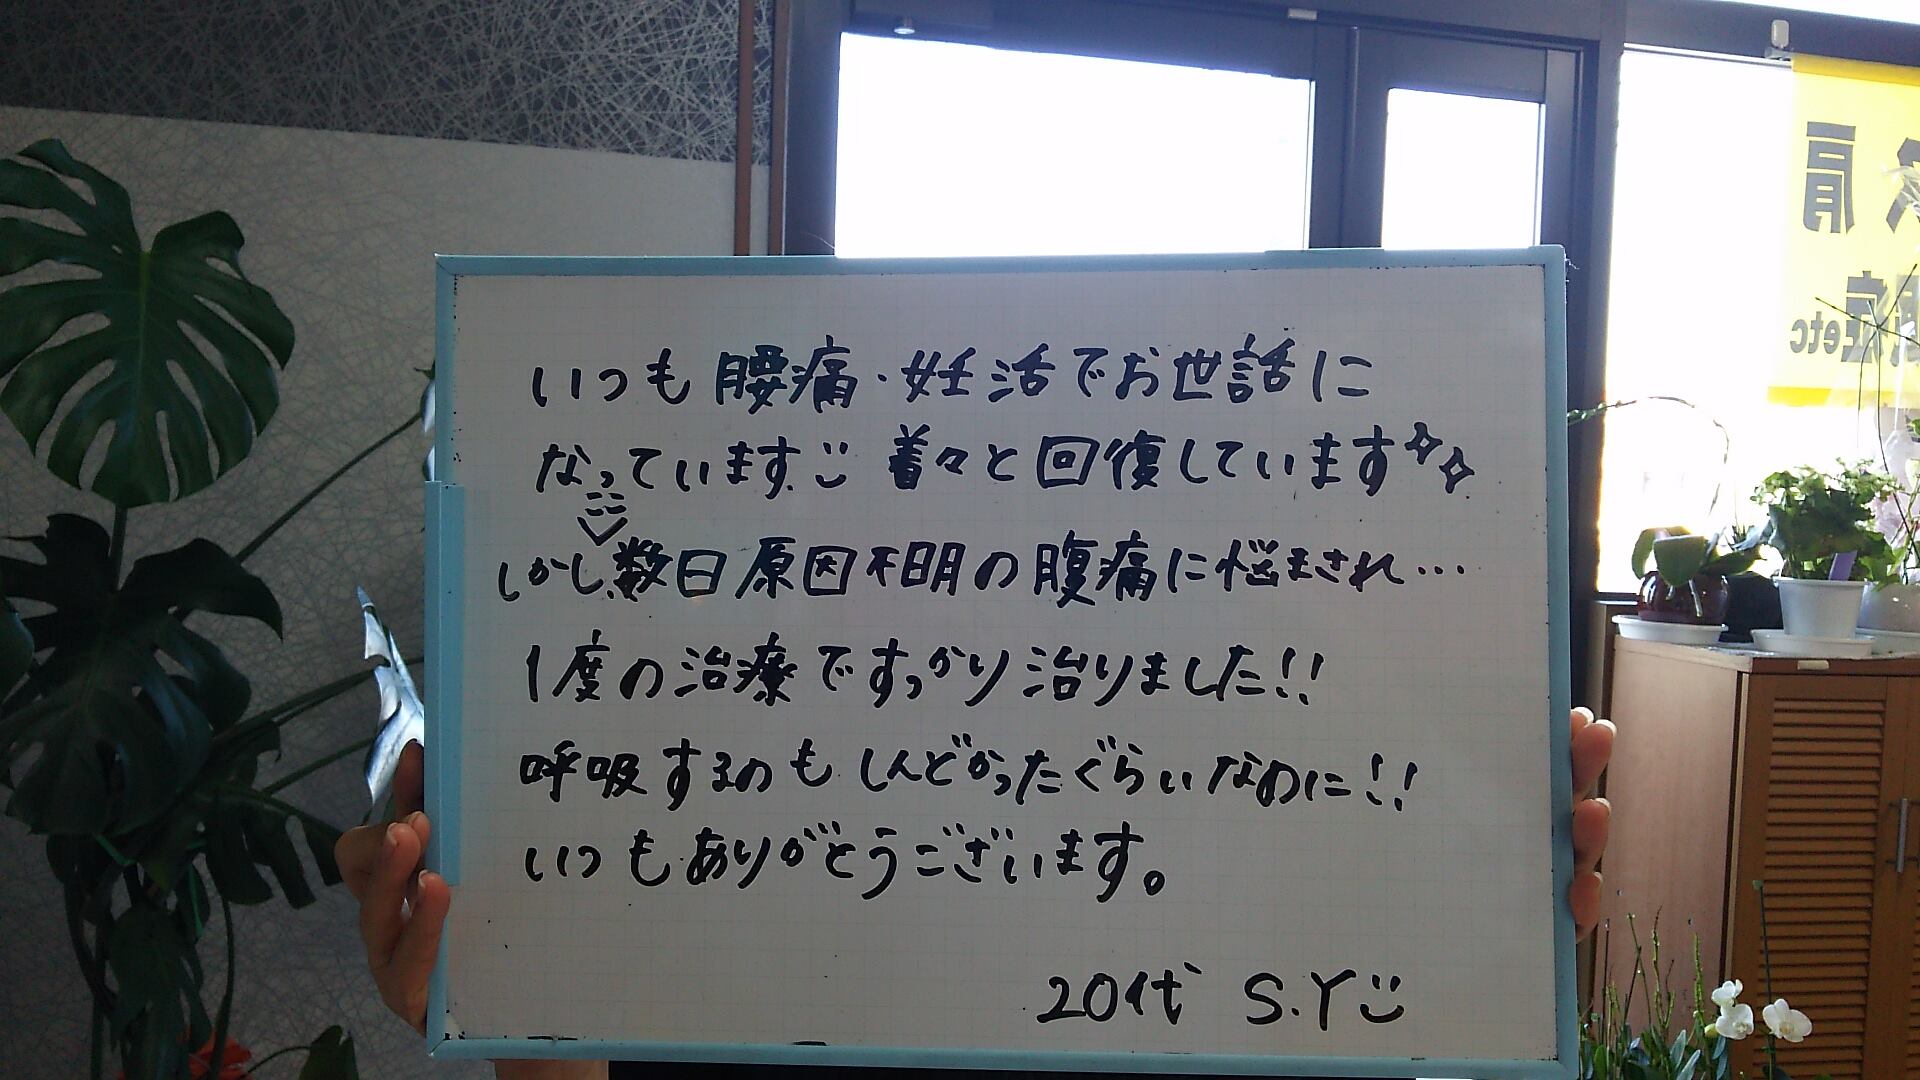 いつも腰痛・妊活でお世話に
なっています。着々と回復しています
しかし、ここ数日原因不明の腹痛に悩まされ…
1度の治療ですっかり治りました!!
呼吸するのもしんどかったぐらいなのに!!
いつもありがとうございます。
20代 S.Y
肩
症etc